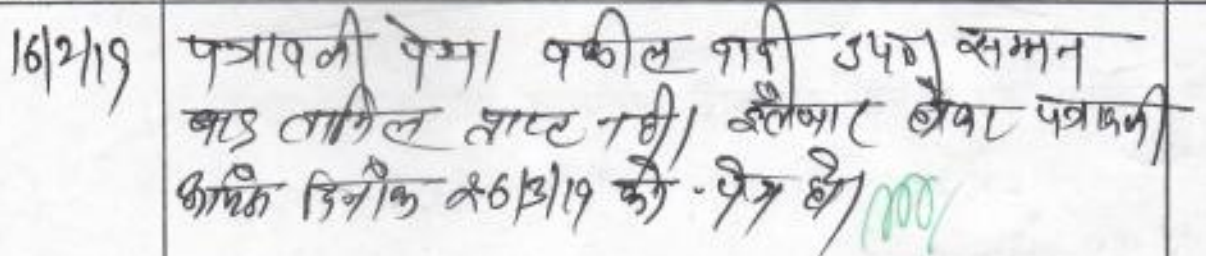 16/2/19 पत्रावली पेश। वकील वादी उप0 सम्मन
बाद तामिल प्राप्त नही। इन्तजार होकर पत्रावली
दिनाँक 26/3/19 को पेश हो।